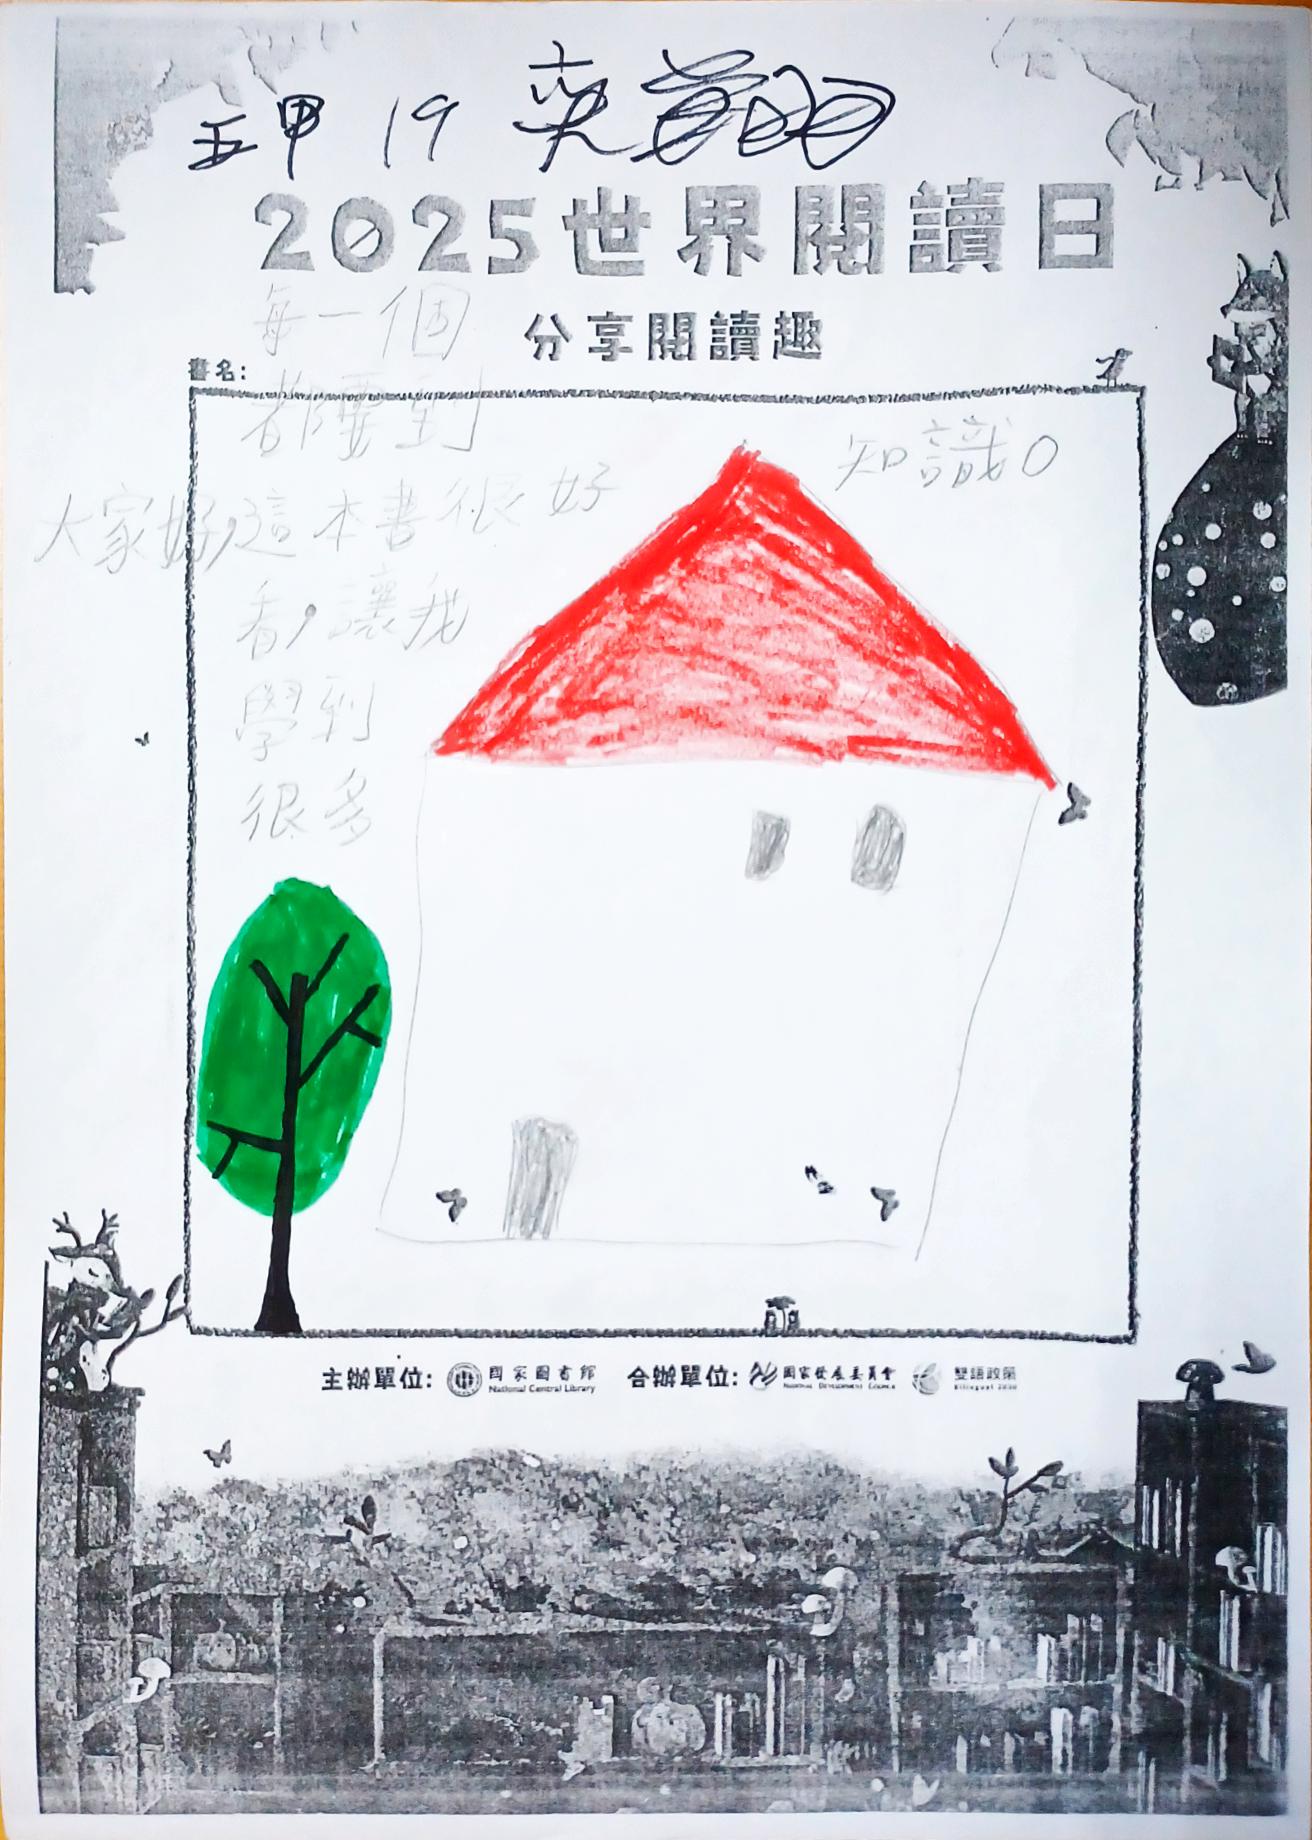 五甲 19 奕
2025世界閱讀日
分享閱讀趣
書名:
每一個
都要到
大家好,這本書很好
看,讓我
學到
很多
知識。
主辦單位: 國家圖書館 National Central Library 合辦單位: 國家發展委員會 National Development Council 雙語政策 Bilingual 2030